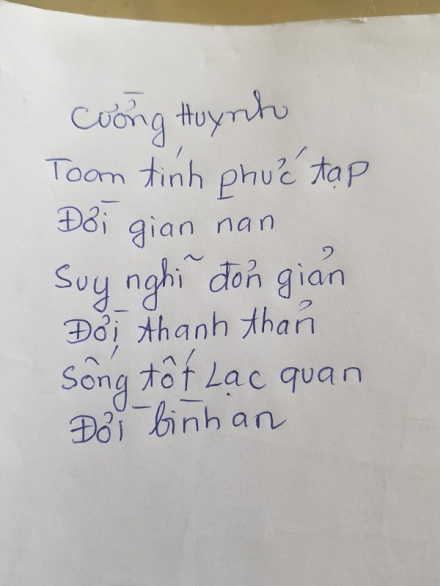 Cường Huynh
Toam tính phức tạp
Đời gian nan
Suy nghĩ đơn giản
Đời thanh thản
Sống tốt Lạc quan
Đời bình an